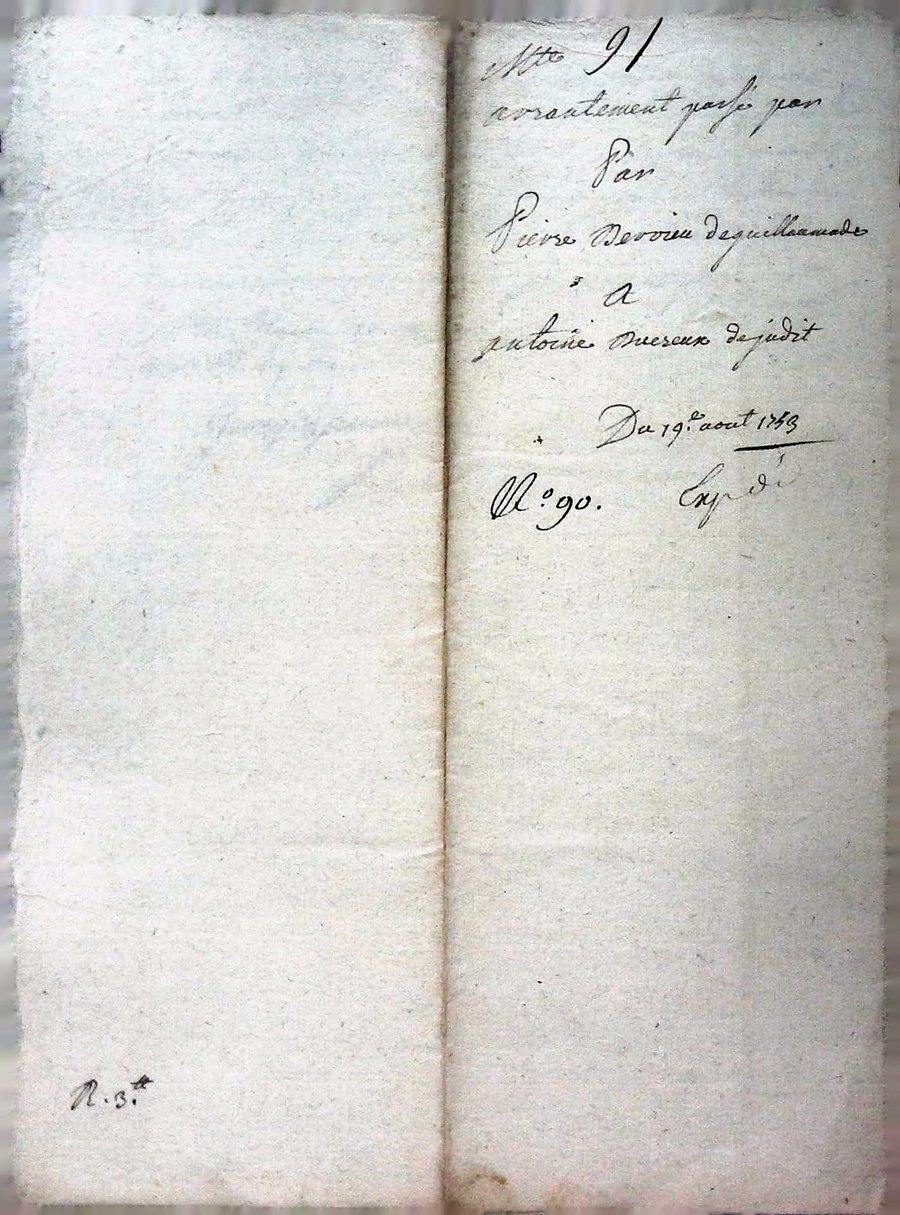 Mte 91
arrantement passé par
Par
Pierre Dervieu deguillaumade
A
antoine Duereux dejudit
Du 19.e aout 1753
N.o 90. Expdi
R. 3.tt